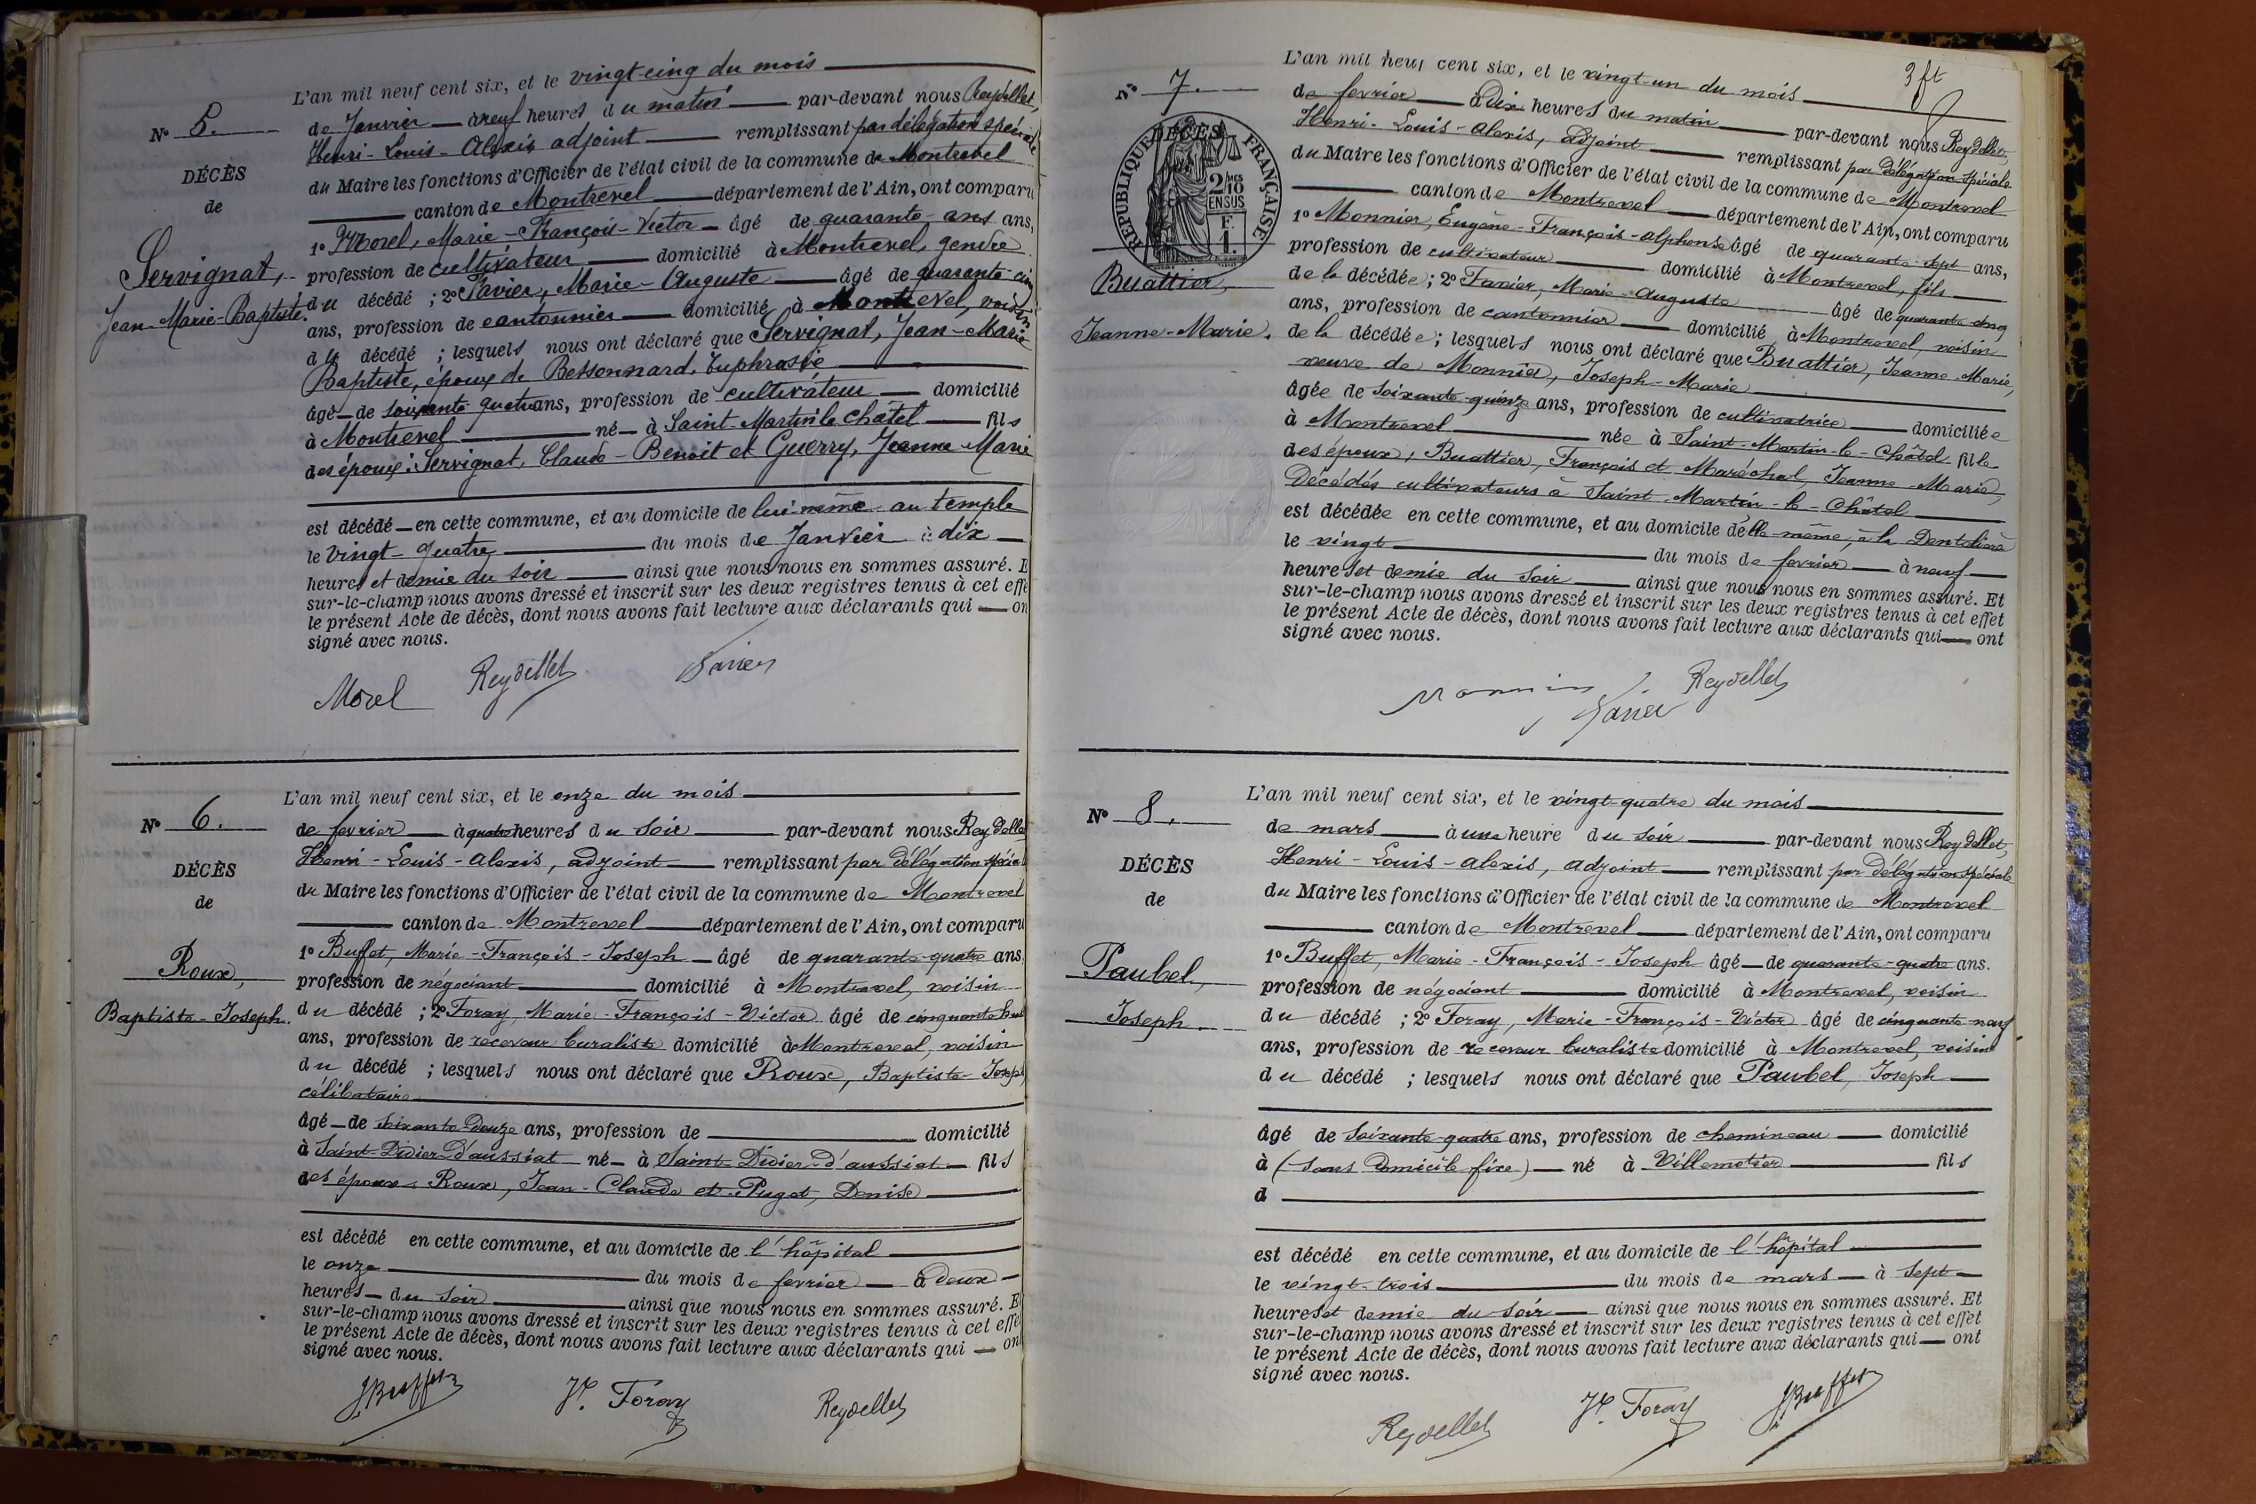 L'an mil neuf cent six, et le vingt-cinq du mois
N° 5.
de Janvier à neuf heures du matin par-devant nous Reydellet,
Henri-Louis-Alexis adjoint remplissant par délégation spéciale
DÉCÈS
du Maire les fonctions d'Officier de l'état civil de la commune de Montrevel
de
canton de Montrevel département de l'Ain, ont comparu
1° Morel, Marie-François-Victor âgé de quarante-ans ans,
Servignat,
profession de cultivateur domicilié à Montrevel, gendre
Jean-Marie-Baptiste.
du décédé ; 2° Favier, Marie-Auguste âgé de quarante-cinq
ans, profession de cantonnier domicilié à Montrevel, voisin
du décédé ; lesquels nous ont déclaré que Servignat, Jean-Marie
Baptiste, époux de Bessonnard, Euphrasie
âgé de soixante quatre ans, profession de cultivateur domicilié
à Montrevel né à Saint-Martin le Châtel fils
des époux : Servignat, Claude-Benoit et Guerry, Jeanne-Marie
est décédé en cette commune, et au domicile de lui-même au temple
le vingt-quatre du mois de Janvier à dix
heures et demie du soir ainsi que nous nous en sommes assuré. E
sur-le-champ nous avons dressé et inscrit sur les deux registres tenus à cet effe
le présent Acte de décès, dont nous avons fait lecture aux déclarants qui on
signé avec nous.
Morel Reydellet Favier
L'an mil neuf cent six, et le onze du mois
N° 6.
de fevrier à quatre heures du soir par-devant nous Reydelle
Henri-Louis-Alexis, adjoint remplissant par délégation spécial
DÉCÈS
du Maire les fonctions d'Officier de l'état civil de la commune de Montrevel
de
canton de Montrevel département de l'Ain, ont comparu
1° Buffet, Marie-François-Joseph âgé de quarante-quatre ans,
Roux,
profession de négociant domicilié à Montrevel, voisin
Baptiste-Joseph.
du décédé ; 2° Foray, Marie-François-Victor âgé de cinquante huit
ans, profession de receveur buraliste domicilié à Montrevel, voisin
du décédé ; lesquels nous ont déclaré que Roux, Baptiste-Joseph
célibataire
âgé de soixante-douze ans, profession de domicilié
à Saint-Didier-d'aussiat né à Saint-Didier-d'aussiat fils
des époux Roux, Jean-Claude et Puget, Denise
est décédé en cette commune, et au domicile de l'hôpital
le onze du mois de fevrier à deux
heures du soir ainsi que nous nous en sommes assuré. E
sur-le-champ nous avons dressé et inscrit sur les deux registres tenus à cet effe
le présent Acte de décès, dont nous avons fait lecture aux déclarants qui on
signé avec nous.
JBuffet Jh. Foray Reydellet
3 ft
L'an mil neuf cent six, et le vingt-un du mois
N° 7.
de fevrier à Dix heures du matin par-devant nous Reydellet,
Henri-Louis-Alexis, Adjoint remplissant par Délégation spéciale
DÉCÈS
RÉPUBLIQUE FRANÇAISE
2/10 MES EN SUS
F. 1
du Maire les fonctions d'Officier de l'état civil de la commune de Montrevel
canton de Montrevel département de l'Ain, ont comparu
1° Monnier, Eugène-François-alphonse âgé de quarante-sept ans,
profession de cultivateur domicilié à Montrevel, fils
Buattier,
de la décédée ; 2° Favier, Marie-Auguste âgé de quarante-cinq
ans, profession de cantonnier domicilié à Montrevel, voisin
Jeanne-Marie.
de la décédée ; lesquels nous ont déclaré que Buattier, Jeanne-Marie,
veuve de Monnier, Joseph-Marie
âgée de soixante-quinze ans, profession de cultivatrice domiciliée
à Montrevel née à Saint-Martin-le-Châtel fille
des époux, Buattier, François et Maréchal, Jeanne-Marie,
Décédés cultivateurs à Saint-Martin-le-Châtel
est décédée en cette commune, et au domicile d'elle-même, à la Dentelière
le vingt du mois de fevrier à neuf
heures et demie du soir ainsi que nous nous en sommes assuré. Et
sur-le-champ nous avons dressé et inscrit sur les deux registres tenus à cet effet
le présent Acte de décès, dont nous avons fait lecture aux déclarants qui ont
signé avec nous.
Monnier Favier Reydellet
L'an mil neuf cent six, et le vingt-quatre du mois
N° 8.
de mars à une heure du soir par-devant nous Reydellet,
Henri-Louis-Alexis, adjoint remplissant par Délégation spéciale
DÉCÈS
du Maire les fonctions d'Officier de l'état civil de la commune de Montrevel
de
canton de Montrevel département de l'Ain, ont comparu
1° Buffet, Marie-François-Joseph âgé de quarante-quatre ans.
Paubel,
profession de négociant domicilié à Montrevel, voisin
Joseph
du décédé ; 2° Foray, Marie-François-Victor âgé de cinquante-neuf
ans, profession de receveur buraliste domicilié à Montrevel, voisin
du décédé ; lesquels nous ont déclaré que Paubel, Joseph
âgé de soixante-quatre ans, profession de chemineau domicilié
à (sans domicile fixe) né à Villemotier fils
d
est décédé en cette commune, et au domicile de l'hôpital
le vingt-trois du mois de mars à sept
heures et demie du soir ainsi que nous nous en sommes assuré. Et
sur-le-champ nous avons dressé et inscrit sur les deux registres tenus à cet effet
le présent Acte de décès, dont nous avons fait lecture aux déclarants qui ont
signé avec nous.
Reydellet Jh. Foray JBuffet